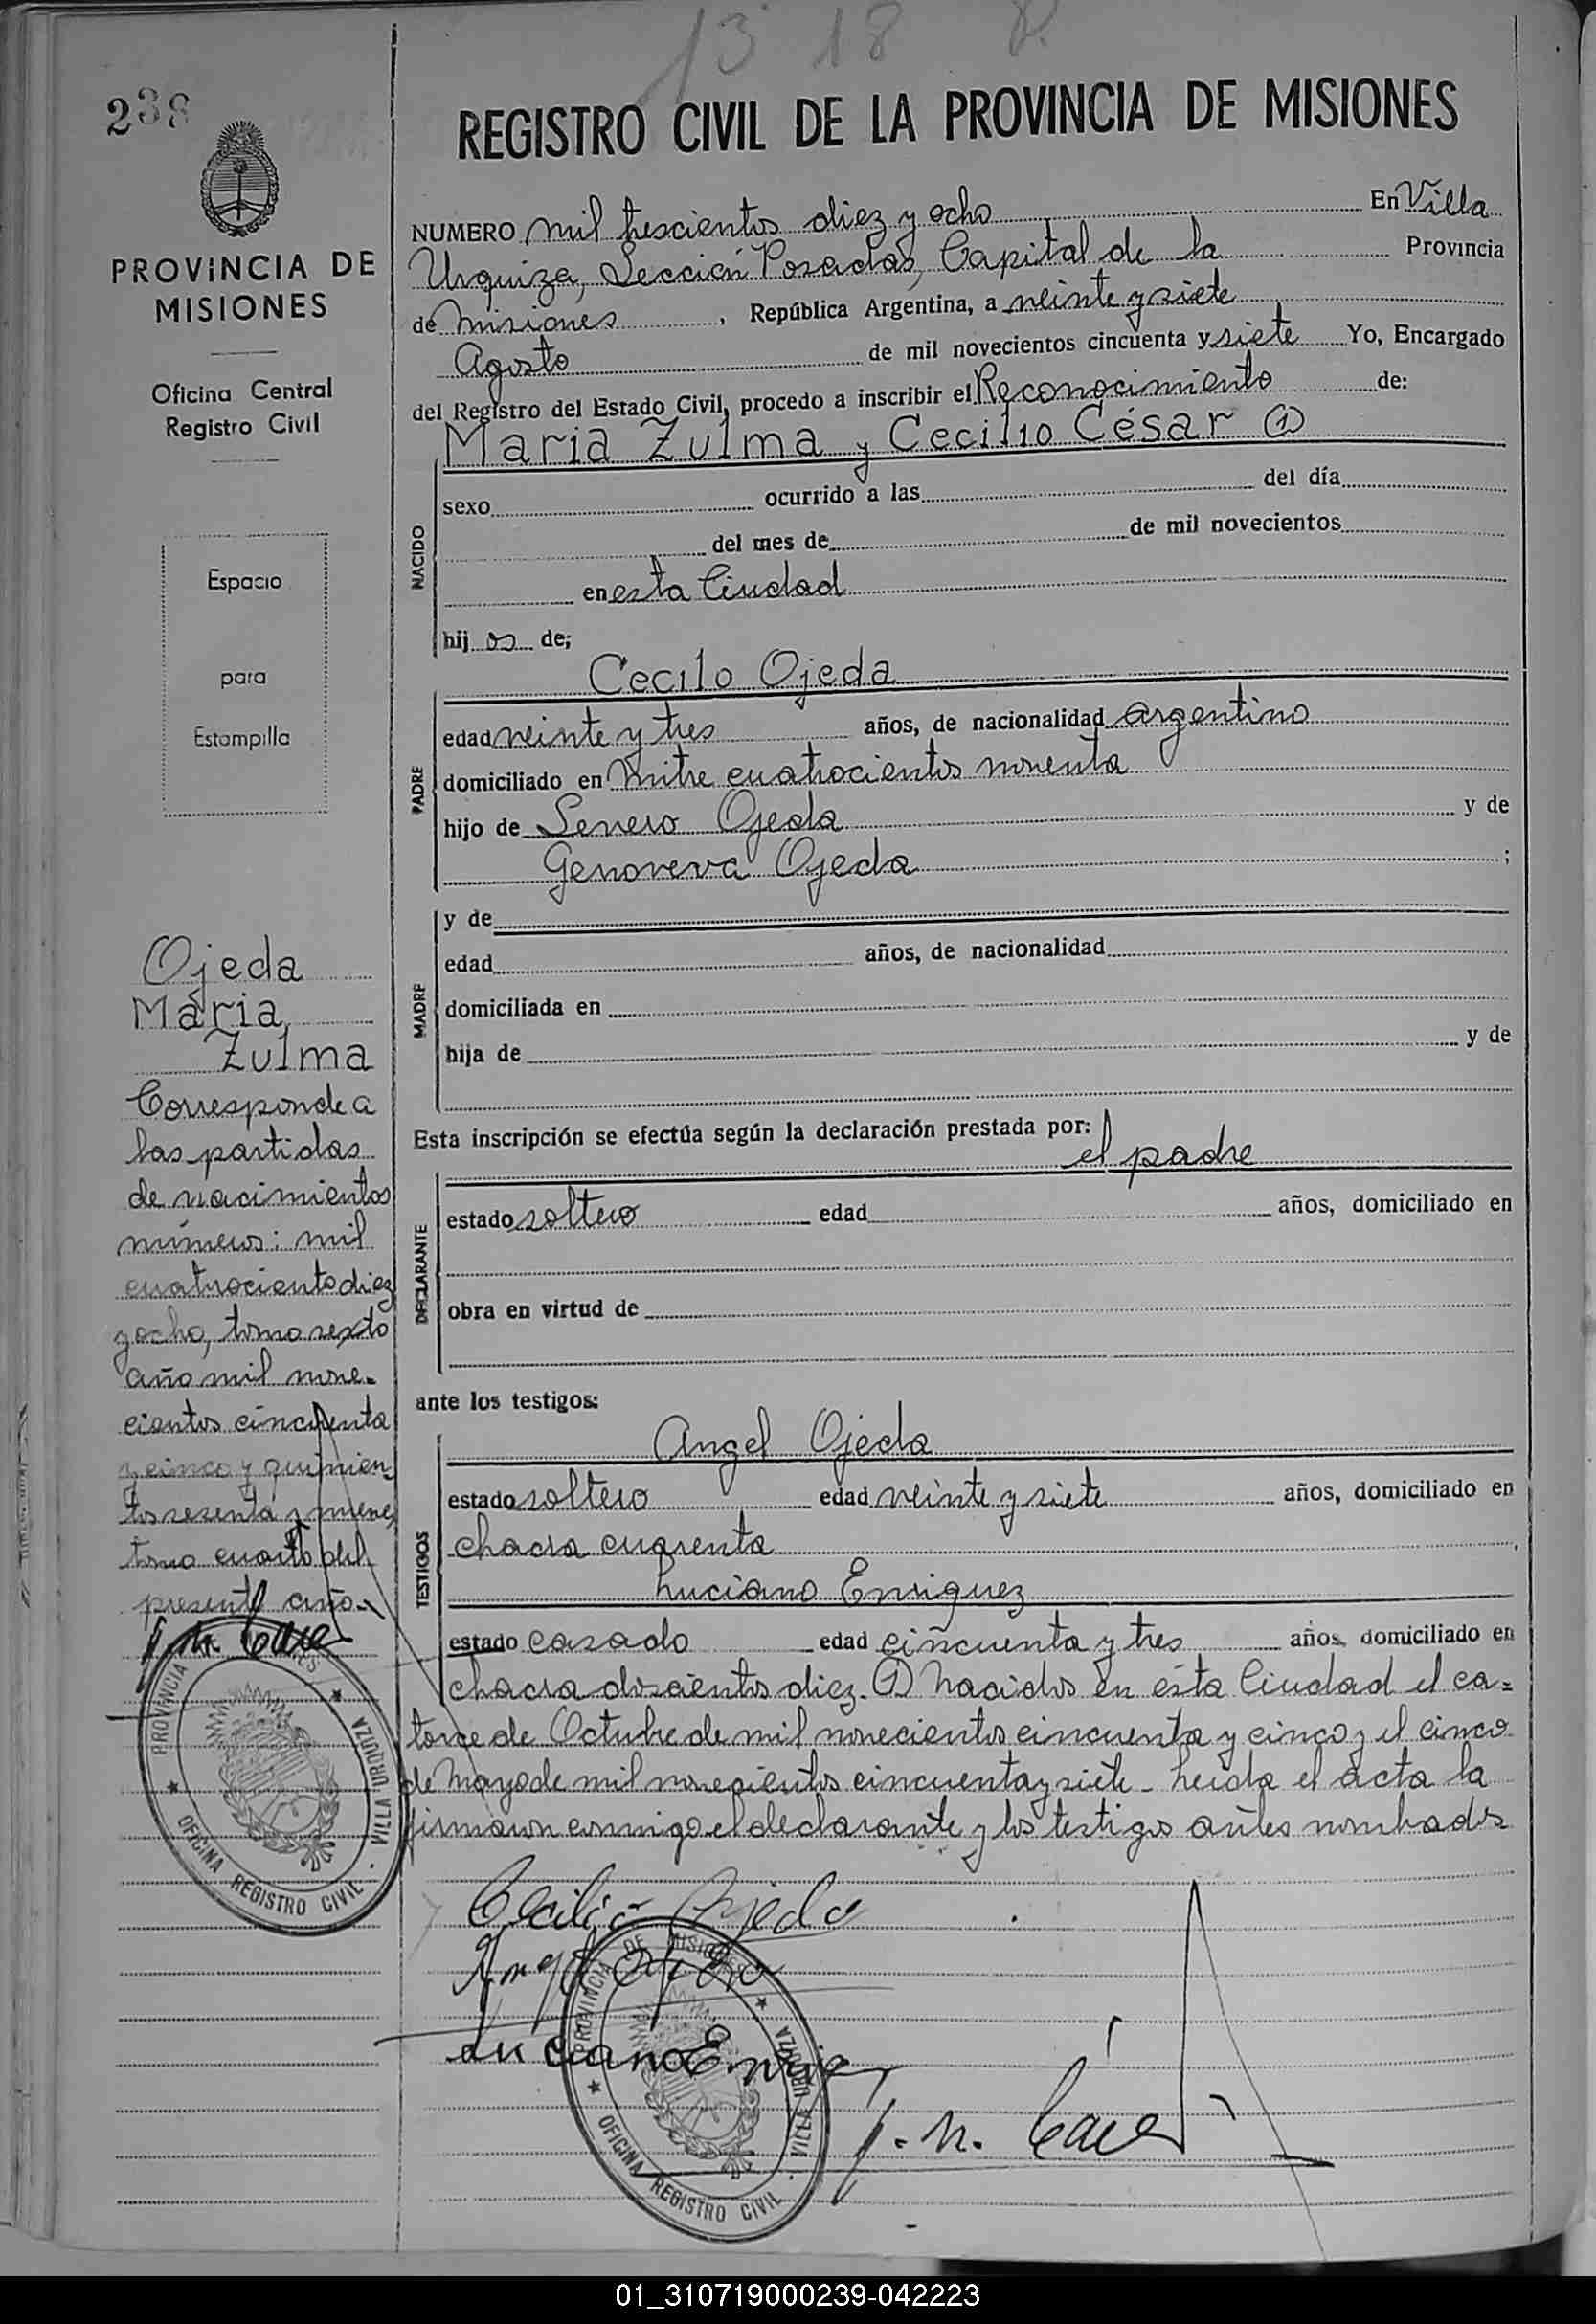 13 18
238
REGISTRO CIVIL DE LA PROVINCIA DE MISIONES
PROVINCIA DE
MISIONES
Oficina Central
Registro Civil
Espacio
para
Estampilla
NUMERO mil trescientos diez y ocho En Villa
Urquiza, Sección Posadas, Capital de la Provincia
de Misiones, República Argentina, a veinte y siete
Agosto de mil novecientos cincuenta y siete Yo, Encargado
del Registro del Estado Civil, procedo a inscribir el Reconocimiento de:
Maria Zulma y Cecilio César (1)
NACIDO
sexo ocurrido a las del día
del mes de de mil novecientos
en esta Ciudad
hijos de;
Cecilo Ojeda
PADRE
edad veinte y tres años, de nacionalidad argentino
domiciliado en Mitre cuatrocientos noventa
hijo de Senero Ojeda y de
Genoveva Ojeda ;
MADRE
y de
edad años, de nacionalidad
domiciliada en
hija de y de
Esta inscripción se efectúa según la declaración prestada por:
el padre
DECLARANTE
estado soltero edad años, domiciliado en
obra en virtud de
ante los testigos:
TESTIGOS
Angel Ojeda
estado soltero edad veinte y siete años, domiciliado en
chacra cuarenta
Luciano Enriquez
estado casado edad cincuenta y tres años, domiciliado en
chacra doscientos diez. (1) Nacidos en esta Ciudad el ca=
torce de Octubre de mil novecientos cincuenta y cinco y el cinco
de Mayo de mil novecientos cincuenta y siete - Leida el acta la
firmaron conmigo el declarante y los testigos antes nombrados
Cecilio Ojeda
Angel Ojeda
Luciano Enriquez
Ojeda
Maria
Zulma
Corresponde a
las partidas
de nacimientos
números: mil
cuatrociento diez
y ocho, tomo sexto
año mil nove-
cientos cincuenta
y cinco y quinien-
tos sesenta y nueve,
tomo cuarto del
presente año.
PROVINCIA DE MISIONES
VILLA URQUIZA
OFICINA REGISTRO CIVIL
PROVINCIA DE MISIONES
VILLA URQUIZA
OFICINA REGISTRO CIVIL
01_310719000239-042223